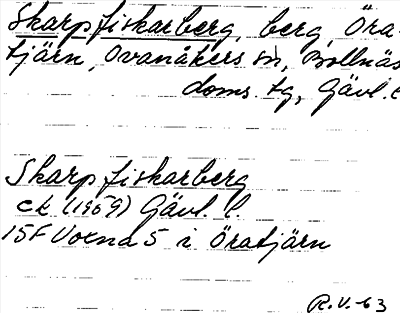 Skarpfiskarberg, berg, Öra-
tjärn, Ovanåkers sn, Bollnäs
doms. tg, Gävl. l
Skarpfiskarberg
ek (1959) Gävl. l.
15F Voxna 5 i Öratjärn
R.V. 63